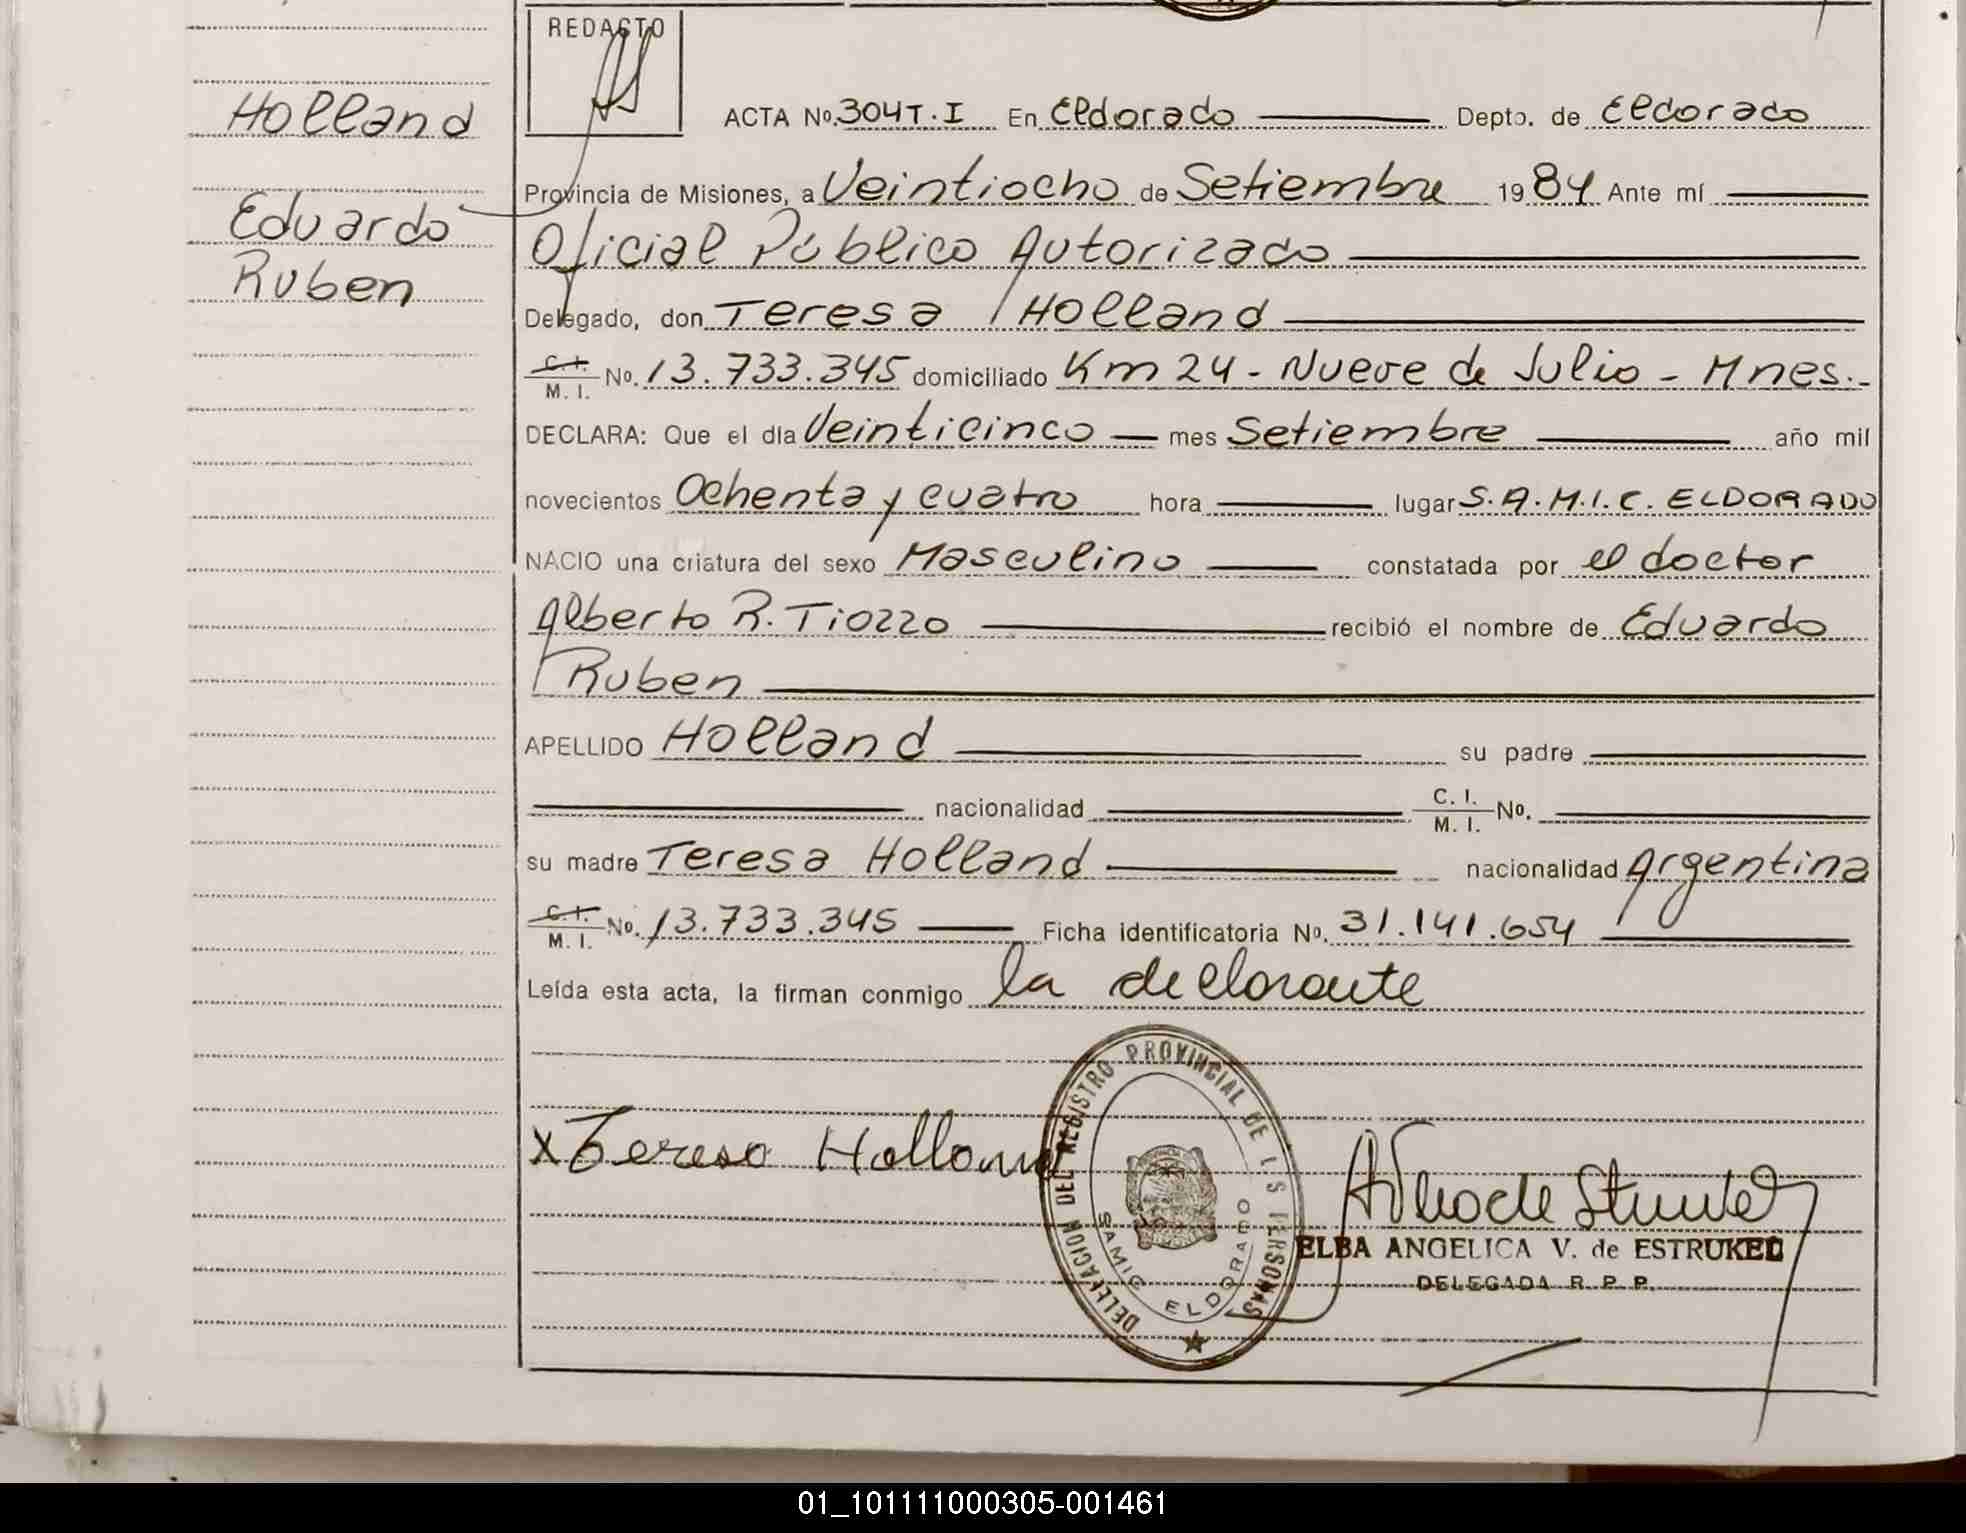 REDACTO
Holland
Eduardo
Ruben
ACTA No. 304 T. I En Eldorado Depto. de Eldorado
Provincia de Misiones, a Veintiocho de Setiembre 1984 Ante mí
Oficial Público Autorizado
Delegado, don Teresa Holland
C. I. / M. I. No. 13.733.345 domiciliado Km 24 - Nueve de Julio - Mnes.-
DECLARA: Que el día Veinticinco mes Setiembre año mil
novecientos Ochenta y cuatro hora lugar S.A.M.I.C. ELDORADO
NACIO una criatura del sexo Masculino constatada por el doctor
Alberto R. Tiozzo recibió el nombre de Eduardo
Ruben
APELLIDO Holland su padre
nacionalidad C. I. / M. I. No.
su madre Teresa Holland nacionalidad Argentina
C. I. / M. I. No. 13.733.345 Ficha identificatoria No. 31.141.654
Leída esta acta, la firman conmigo la declarante
x Teresa Holland
DELEGACION DEL REGISTRO PROVINCIAL DE LAS PERSONAS
SAMIC ELDORADO
ELBA ANGELICA V. de ESTRUKEL
DELEGADA R. P. P.
01_101111000305-001461